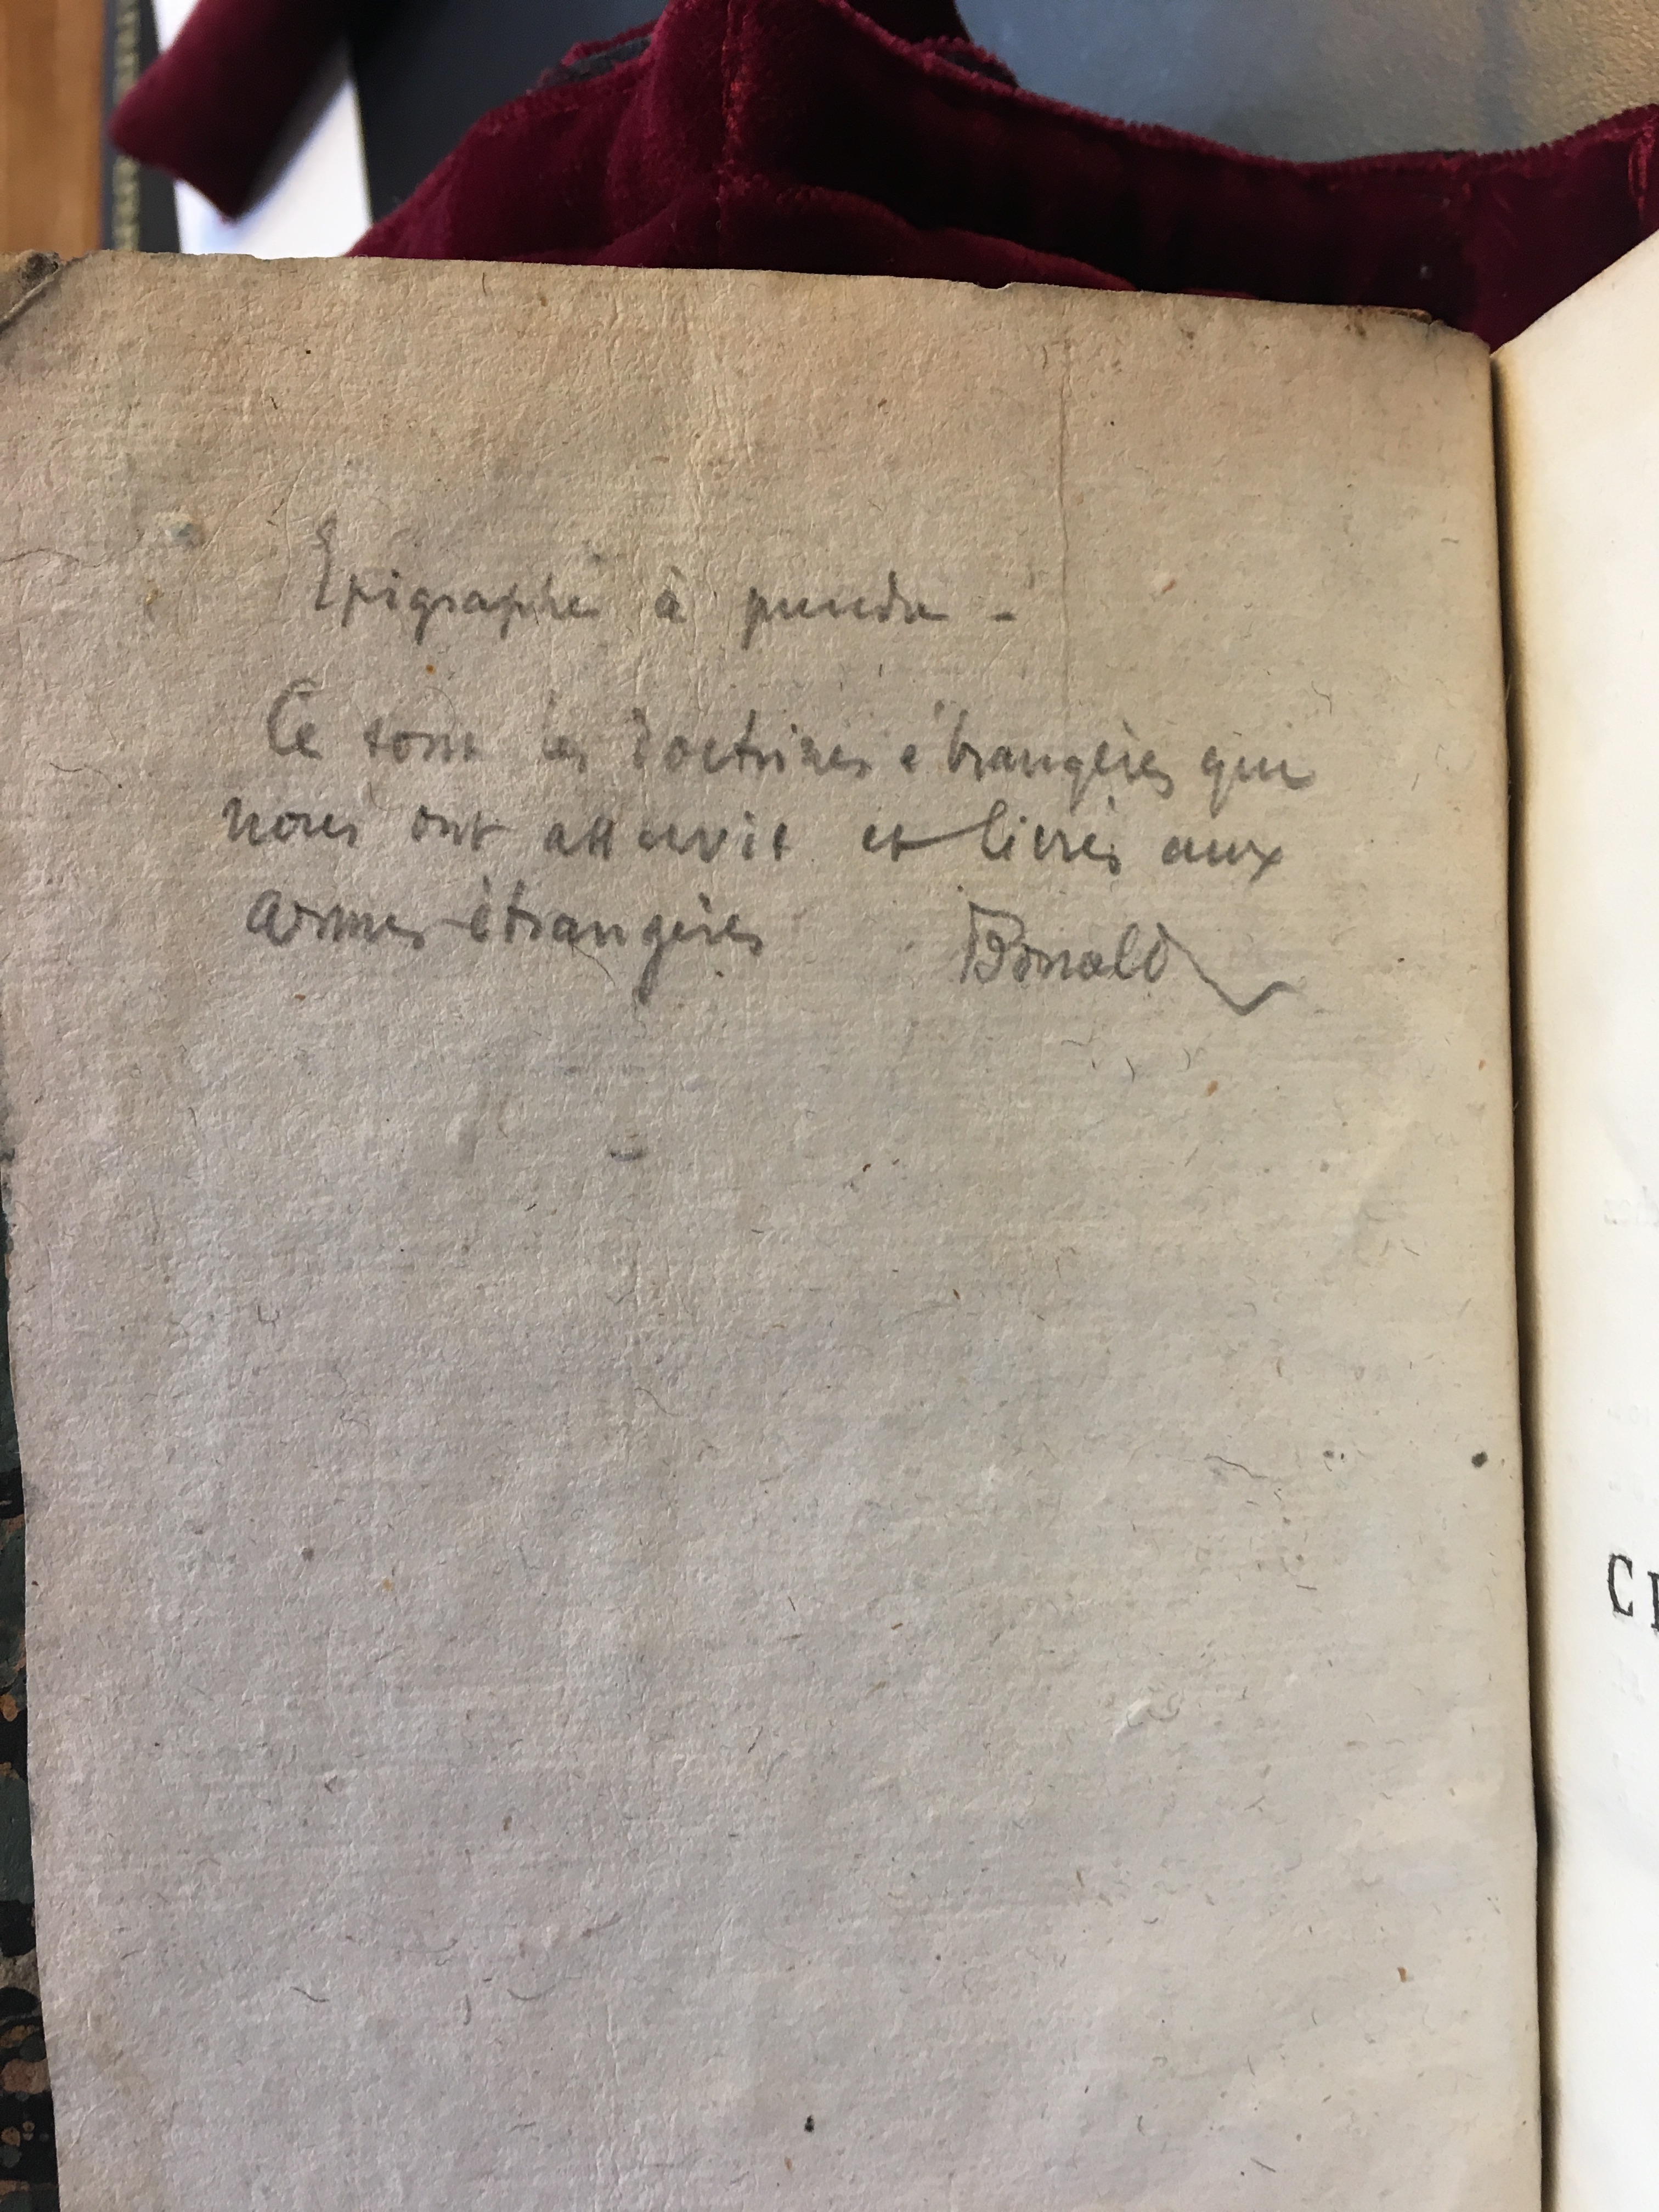 Epigraphe à prendre -
Ce sont les doctrines étrangères qui
nous ont asservis et livrés aux
armes étrangères Bonald